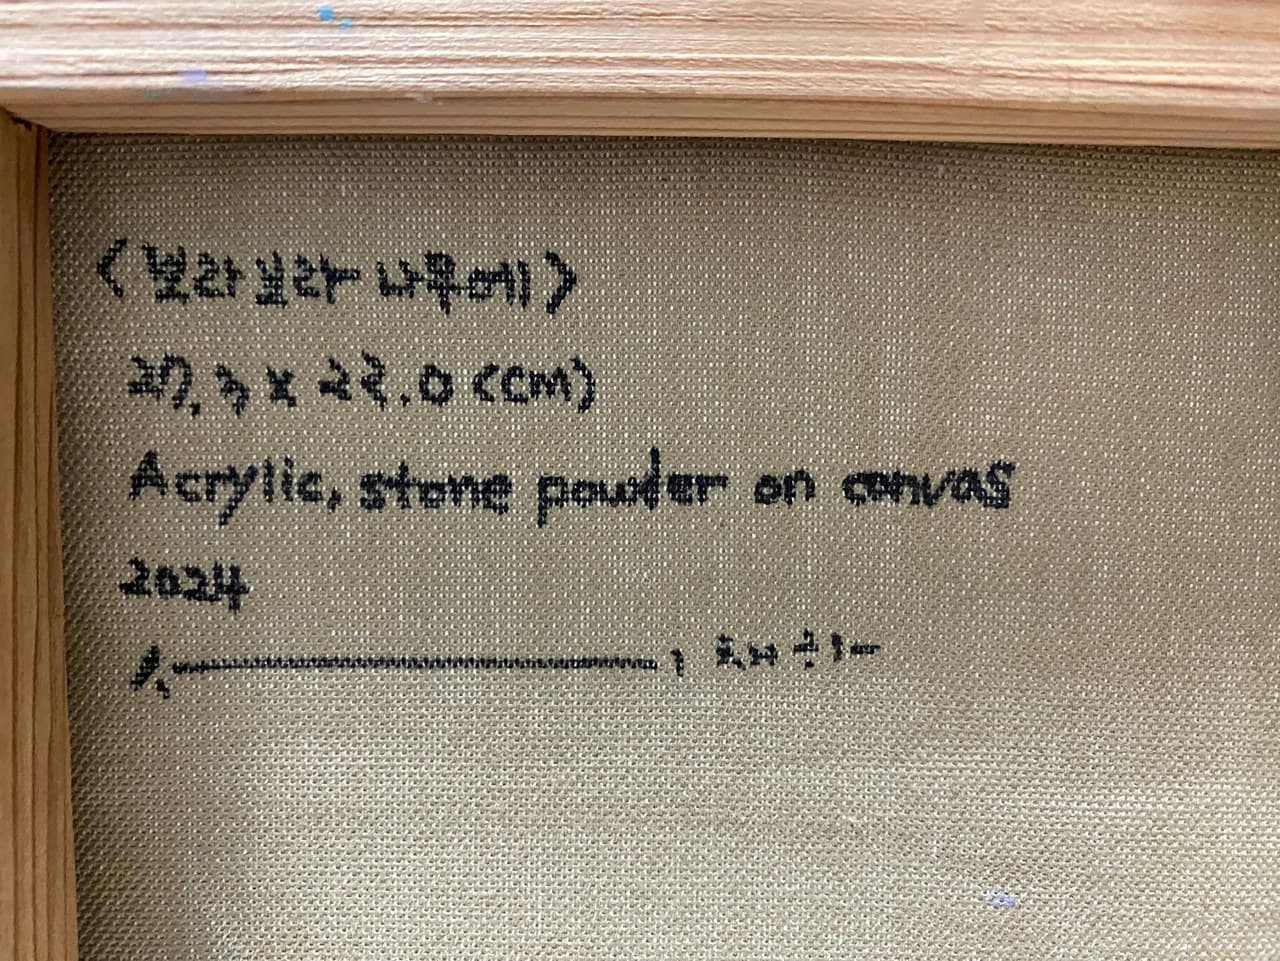 <보라보라 나무에>
27.3 x 22.0 (cm)
Acrylic, stone powder on canvas
2024